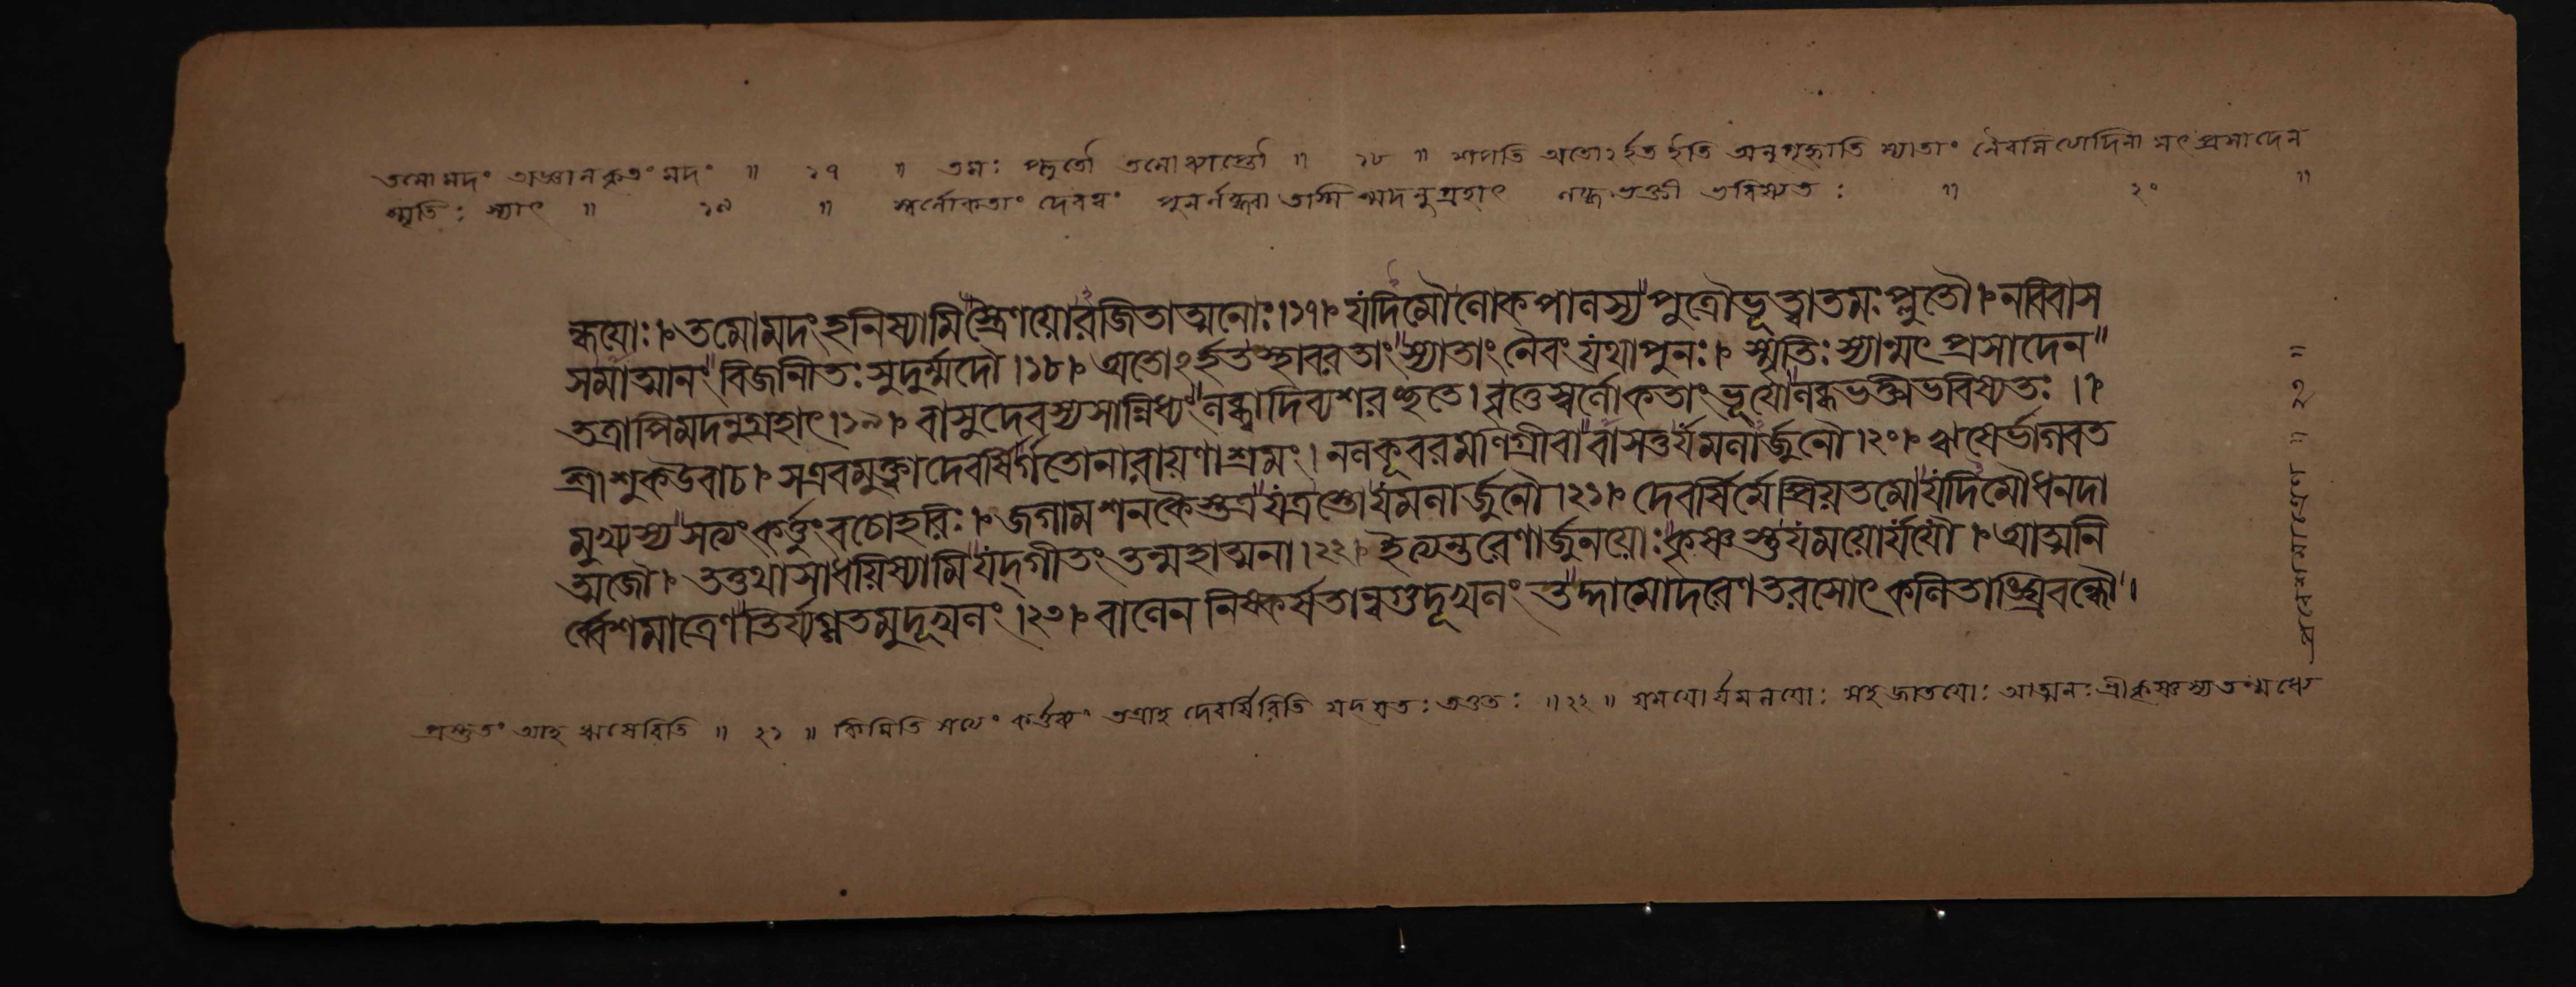 তমোমদং অজ্ঞানকৃতং মদং ॥ ১৭ ॥ তমঃ প্লুতৌ তমোব্যাপ্তৌ ॥ ১৮ ॥ শপতি অতোঽর্হত ইতি অনুগৃহ্ণাতি স্যাতাং নৈবমিত্যাদিনা মৎপ্রসাদেন
স্মৃতিঃ স্যাৎ ॥ ১৯ ॥ স্বর্লোকতাং দেবত্বং পুনর্লব্ধ্বা তস্মিন্মদনুগ্রহাৎ লব্ধভক্তী ভবিষ্যতঃ ॥ ২০ ॥
ন্ধয়োঃ। তমোমদং হনিষ্যামি স্ত্রৈণয়োরজিতাত্মনোঃ।১৭। যদিমৌ লোকপালস্য পুত্রৌ ভূত্বা তমঃ প্লুতৌ। নবিবাস
সমাত্মানং বিজানীতঃ সুদুর্ম্মদৌ।১৮। অতোঽর্হতস্থাবরতাং স্যাতাং নৈবং যথা পুনঃ। স্মৃতিঃ স্যান্মৎপ্রসাদেন
তত্রাপি মদনুগ্রহাৎ।১৯। বাসুদেবস্য সান্নিধ্যং লব্ধ্বা দিব্যশরচ্ছতে। বৃত্তে স্বর্লোকতাং ভূয়ো লব্ধভক্তী ভবিষ্যতঃ।
শ্রীশুকউবাচ। সএবমুক্ত্বা দেবর্ষির্গতো নারায়ণাশ্রমং। নলকূবরমণিগ্রীবাবাসতুর্যমলার্জুনৌ।২০। ঋষের্ভাগবত
মুখ্যস্য সত্যং কর্ত্তুং বচো হরিঃ। জগাম শনকৈস্তত্র যত্রাস্তোং যমলার্জুনৌ।২১। দেবর্ষির্ম্মে প্রিয়তমো যদিমৌ ধনদা
ত্মজৌ। তত্তথা সাধয়িষ্যামি যদ্গীতং তন্মহাত্মনা।২২। ইত্যন্তরেণার্জুনয়োঃ কৃষ্ণস্তু যময়োর্যযৌ। আত্মনি
র্ব্বেশমাত্রেণ তির্য্যগ্গতমুদূখলং।২৩। বালেন নিষ্কর্ষতান্বগুদূখলং তদ্দামোদরেণ তরসোৎকলিতাঙ্ঘ্রিবন্ধৌ।
প্রস্তুতং আহ ঋষেরিতি ॥ ২১ ॥ কিমিতি সত্যং কর্ত্তব্যং তত্রাহ দেবর্ষিরিতি যদ্যতঃ তত্ততঃ ॥ ২২ ॥ যময়োর্যমলয়োঃ সহজাতয়োঃ আত্মনঃ শ্রীকৃষ্ণস্য তন্মধ্যে
প্রবেশমাত্রেণ ॥ ২৩ ॥